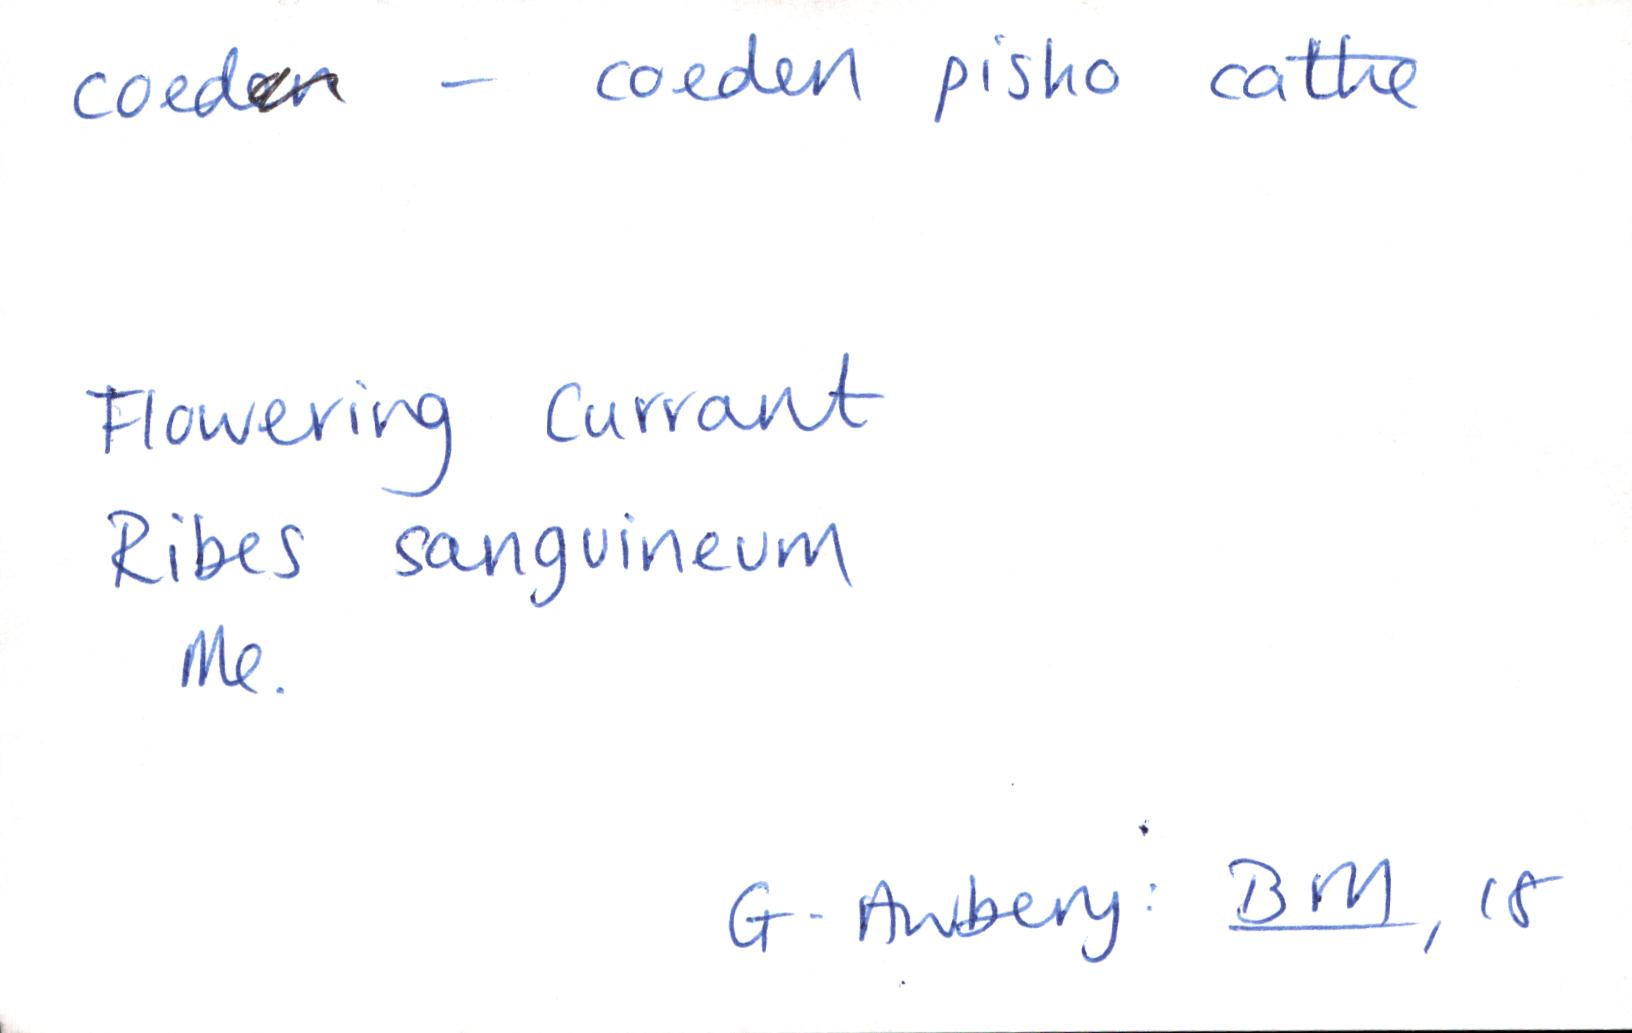 coeden – coeden pisho cathe
Flowering Currant
Ribes sanguineum
Me.
G. Awbery: BM, 18